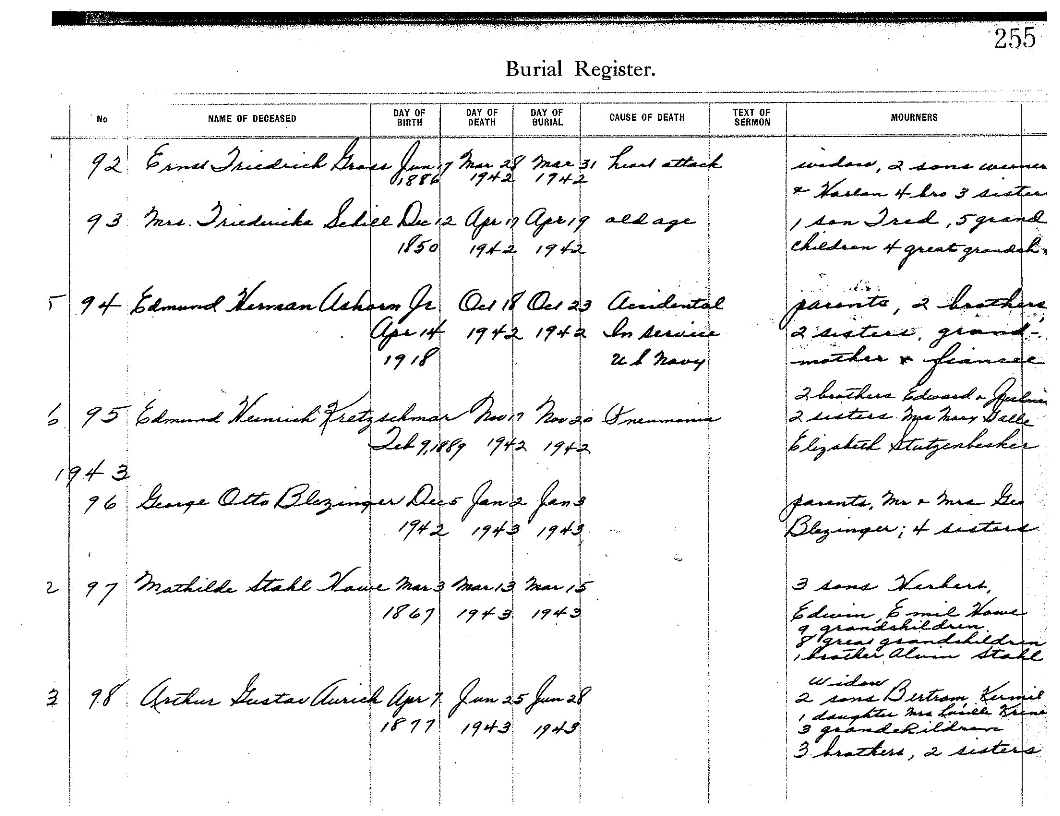 255
Burial Register.
No NAME OF DECEASED DAY OF BIRTH DAY OF DEATH DAY OF BURIAL CAUSE OF DEATH TEXT OF SERMON MOURNERS
92 Ernst Friedrich Gross Jun 7 Mar 28 Mar 31 heart attack widow, 2 sons werner
1886 1942 1942 & Harlan 4 bro 3 sisters
93 Mrs. Friedericke Schill Dec 12 Apr 17 Apr 19 old age 1 son Fred, 5 grand
1850 1942 1942 children 4 great grandch
5 94 Edmund Herman Ashorn Jr. Oct 18 Oct 23 Accidental parents, 2 brothers,
Apr 14 1942 1942 In service 2 sisters, grand-
1918 U S Navy mother & fiancee
2 brothers Edward &
6 95 Edmund Heinrich Kretzschmar Nov 17 Nov 20 Pneumonia 2 sisters Mrs Mary
Feb 9, 1889 1942 1942 Elizabeth Stutzenbecker
1943
96 George Otto Blezinger Dec 5 Jan 2 Jan 3 parents, Mr & Mrs Geo
1942 1943 1943 Blezinger; 4 sisters
2 97 Mathilde Stahl Howe Mar 3 Mar 13 Mar 15 3 sons Herbert,
1867 1943 1943 Edwin, Emil Howe
9 grandchildren
8 great grandchildren
1 brother Alvin Stahl
widow
3 98 Arthur Gustav Aurich Apr 7 Jun 25 Jun 28 2 sons Bertram, Kermit
1877 1943 1943 1 daughter Mrs Lucille
3 grandchildren
3 brothers, 2 sisters